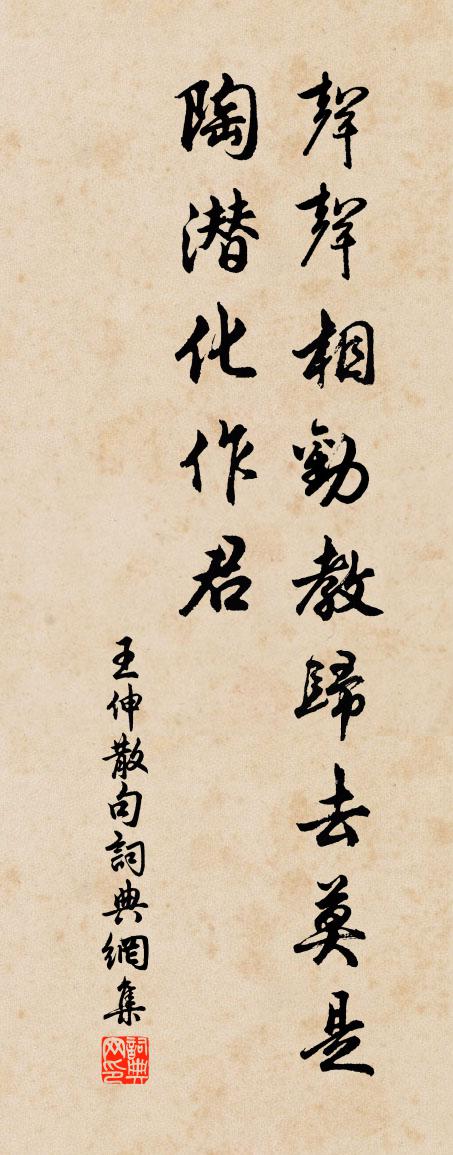 聲聲相勸教歸去莫是
陶潛化作君
王伸散句詞典網集
詞典网印